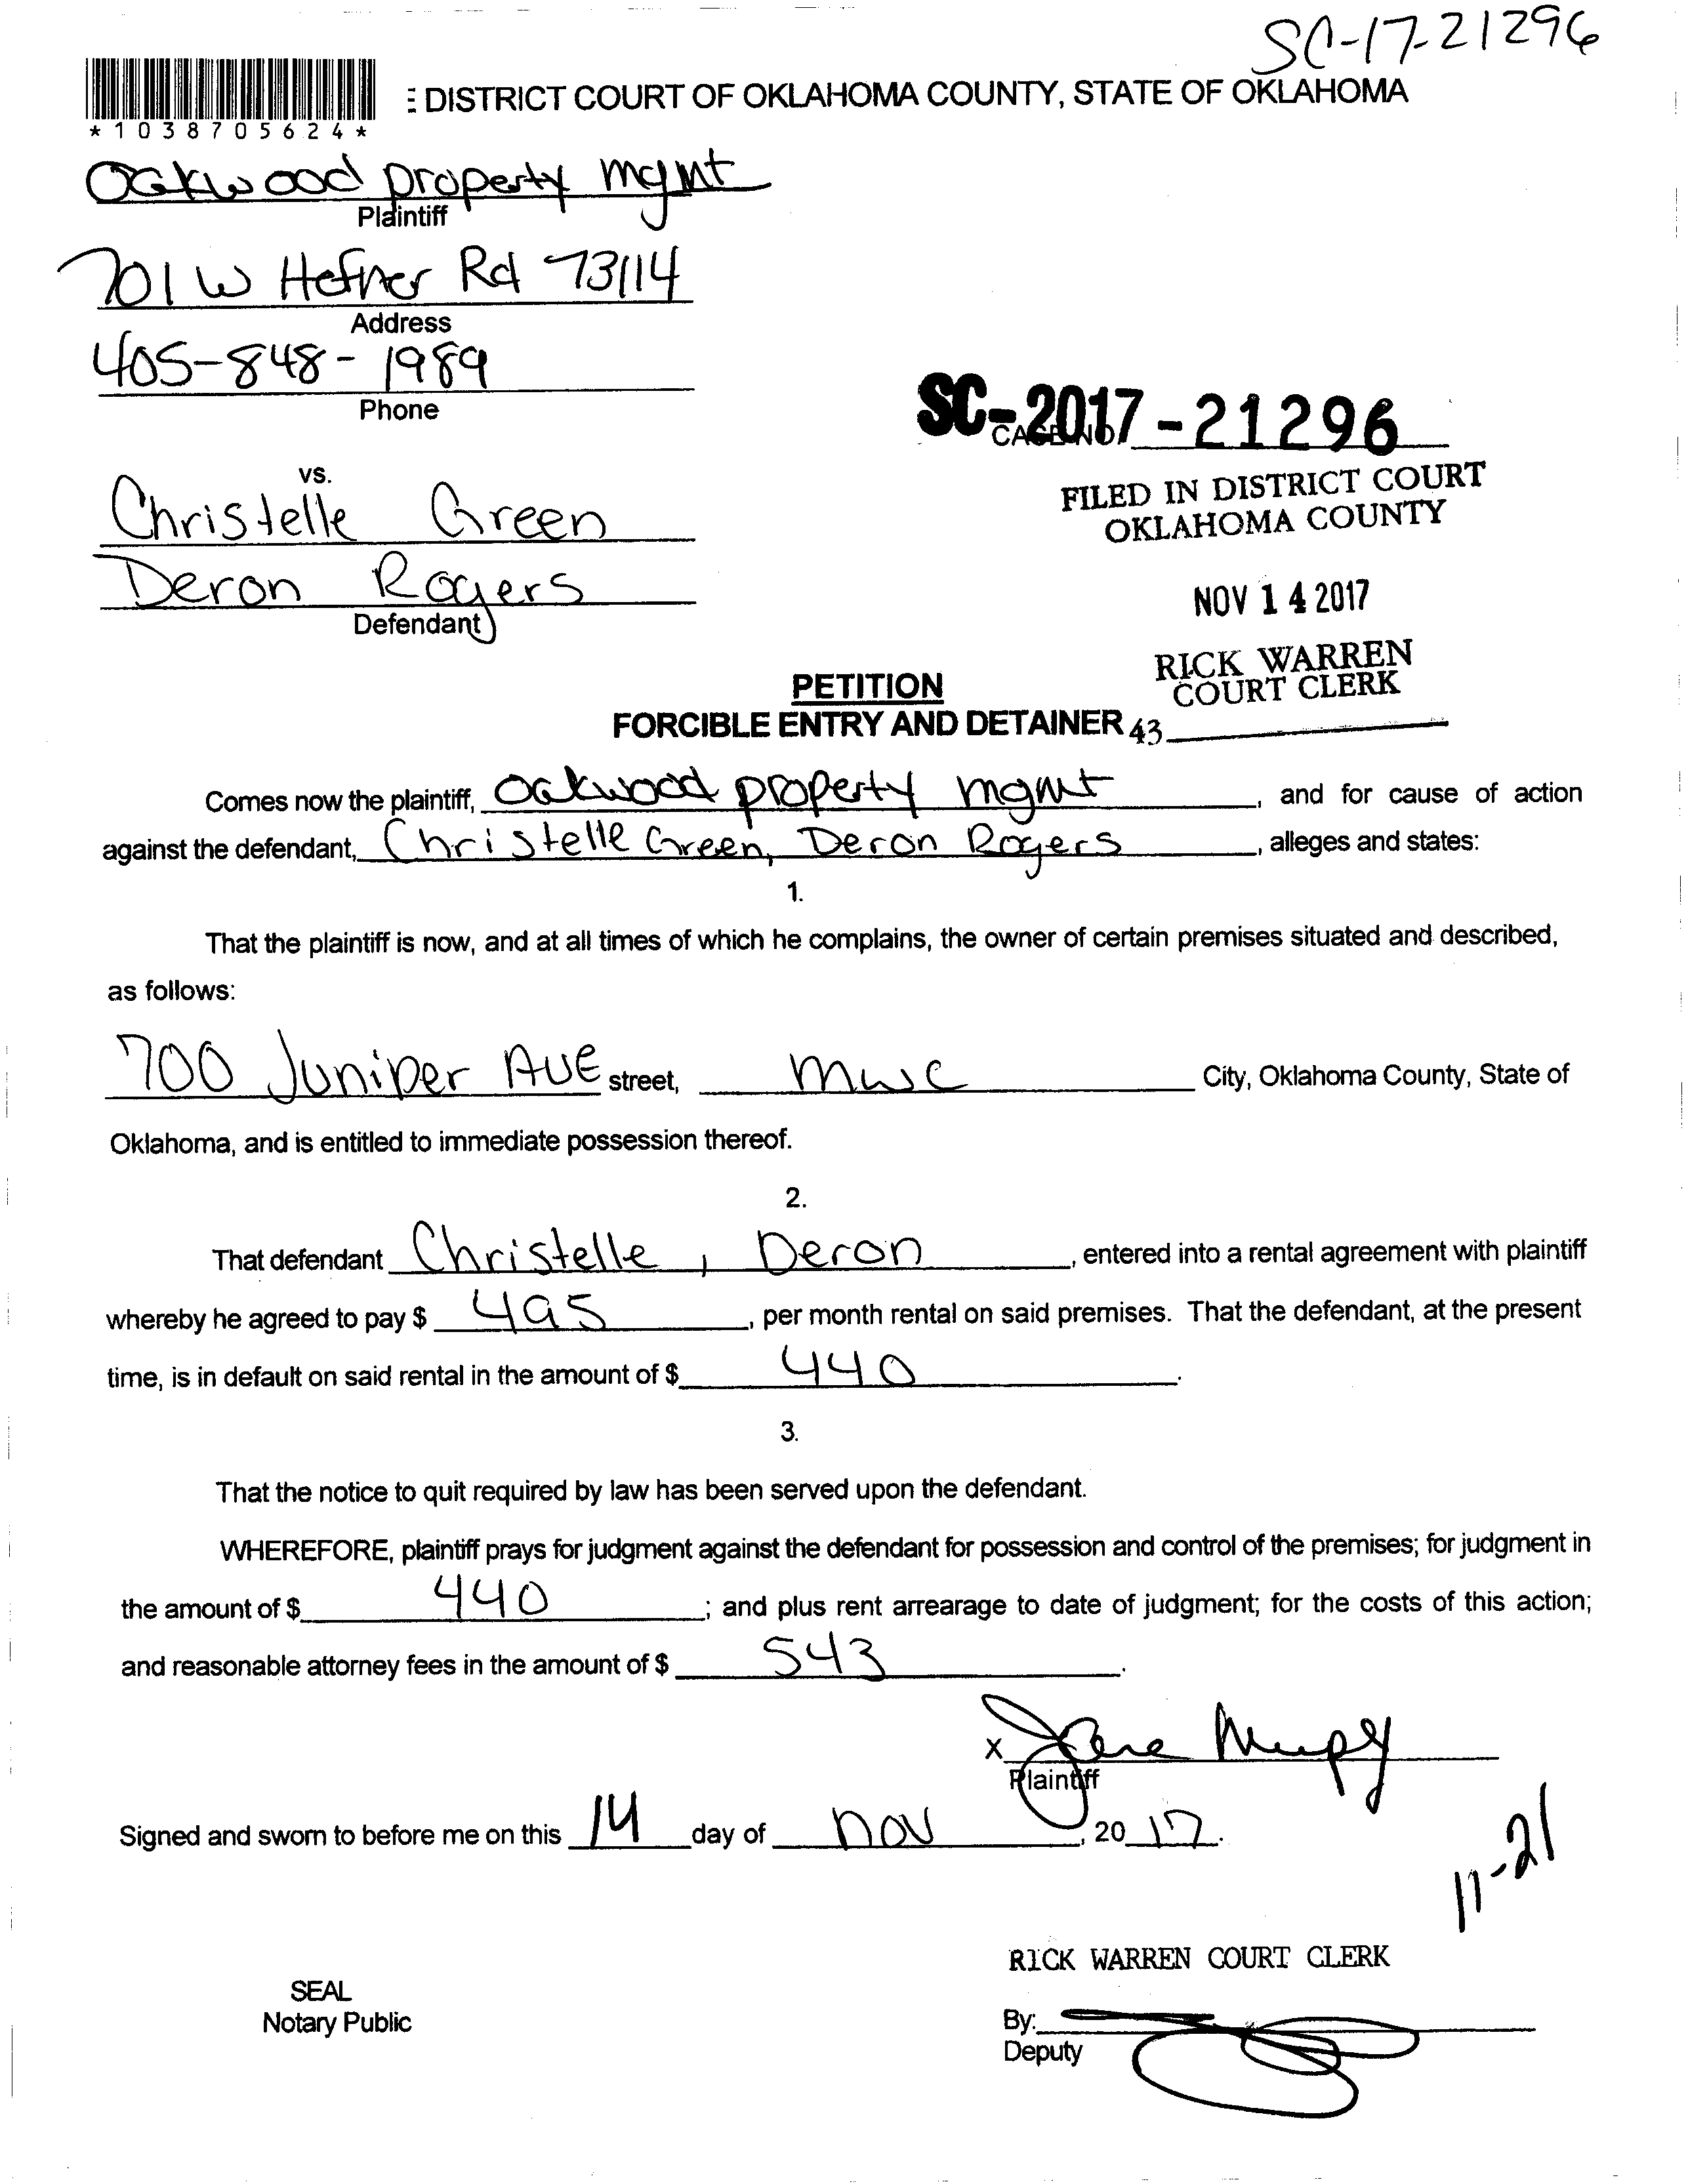 SC-17-21296
: DISTRICT COURT OF OKLAHOMA COUNTY, STATE OF OKLAHOMA
*1038705624*
Oakwood property mgmt
Plaintiff
701 W Hefner Rd 73114
Address
405-848-1989
Phone
SC-2017-21296
CASE NO.
vs.
Christelle Green
Deron Rogers
Defendant
FILED IN DISTRICT COURT
OKLAHOMA COUNTY
NOV 14 2017
RICK WARREN
COURT CLERK
43
PETITION
FORCIBLE ENTRY AND DETAINER
Comes now the plaintiff, Oakwood property mgmt, and for cause of action
against the defendant, Christelle Green, Deron Rogers, alleges and states:
1.
That the plaintiff is now, and at all times of which he complains, the owner of certain premises situated and described,
as follows:
700 Juniper Ave street, mwc City, Oklahoma County, State of
Oklahoma, and is entitled to immediate possession thereof.
2.
That defendant Christelle, Deron, entered into a rental agreement with plaintiff
whereby he agreed to pay $ 495, per month rental on said premises. That the defendant, at the present
time, is in default on said rental in the amount of $ 440.
3.
That the notice to quit required by law has been served upon the defendant.
WHEREFORE, plaintiff prays for judgment against the defendant for possession and control of the premises; for judgment in
the amount of $ 440; and plus rent arrearage to date of judgment; for the costs of this action;
and reasonable attorney fees in the amount of $ 543.
X
Plaintiff
Signed and sworn to before me on this 14 day of nov, 2017.
11-21
RICK WARREN COURT CLERK
SEAL
Notary Public
By:
Deputy